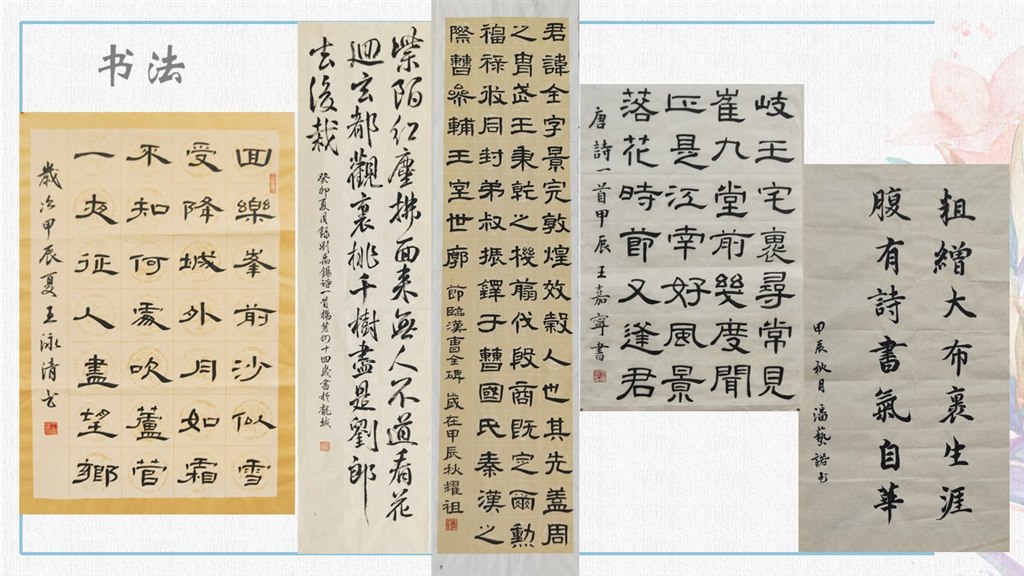 书法
回樂峯前沙似雪
受降城外月如霜
不知何處吹蘆管
一夜征人盡望鄉
歲次甲辰夏王泳清书
紫陌红塵拂面来無人不道看花
迴玄都觀裏桃千樹盡是劉郎
去後栽
癸卯夏月錄劉禹錫詩一首楊十四歲書於龍城
君諱全字景完敦煌效穀人也其先蓋周
之胄武王秉乾之機翦伐殷商既定爾勲
福禄攸同封弟叔振鐸于曹國氏秦漢之
際曹參輔王室世廓
節臨漢曹全碑歲在甲辰秋耀祖
岐王宅裏尋常見
崔九堂前幾度聞
正是江南好風景
落花時節又逢君
唐詩一首甲辰王嘉寧書
粗繒大布裹生涯
腹有詩書氣自華
甲辰秋月潘藝諾书